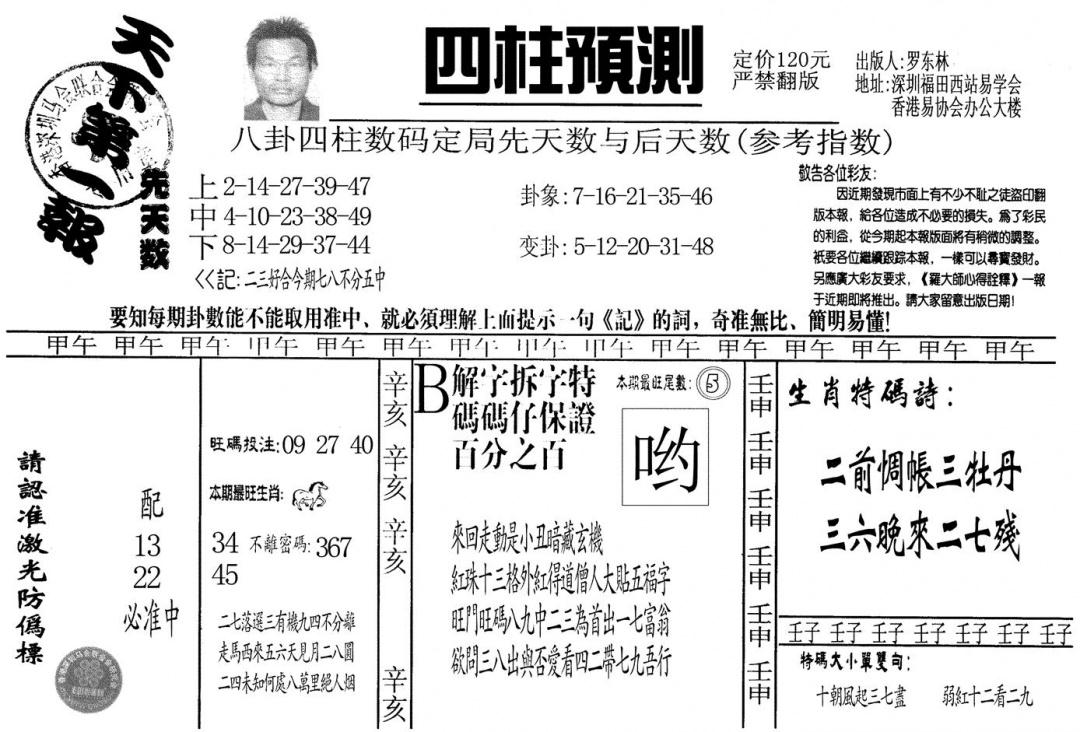 天下第一報
四柱預測
定价120元
严禁翻版
出版人:罗东林
地址:深圳福田西站易学会
香港易协会办公大楼
八卦四柱数码定局先天数与后天数(参考指数)
先天数
上2-14-27-39-47
中4-10-23-38-49
下8-14-29-37-44
<<記:二三好合今期七八不分五中
卦象:7-16-21-35-46
变卦:5-12-20-31-48
敬告各位彩友:
因近期發現市面上有不少不耻之徒盜印翻
版本報，給各位造成不必要的損失。爲了彩民
的利益，從今期起本報版面將有稍微的調整。
衹要各位繼續跟踪本報，一樣可以尋寶發財。
另應廣大彩友要求，《羅大師心得詮釋》一報
于近期即將推出。請大家留意出版日期!
要知每期卦數能不能取用准中、就必須理解上面提示一句《記》的詞，奇准無比、簡明易懂!
甲午 甲午 甲午 甲午 甲午 甲午 甲午 甲午 甲午 甲午 甲午 甲午 甲午 甲午 甲午
請認准激光防僞標
配
13
22
必准中
旺碼投注:09 27 40
本期最旺生肖:
34 不離密碼:367
45
二七落選三有機九四不分離
走馬西來五六天見月二八圓
二四未知何處八萬里絕人烟
辛亥
辛亥
辛亥
辛亥
B解字拆字特
碼碼仔保證
百分之百
本期最旺尾數:5
哟
來回走動是小丑暗藏玄機
紅珠十三格外紅得道僧人大貼五福字
旺門旺碼八九中二三為首出一七富翁
欲問三八出與否愛看四二帶七九吾行
壬申
壬申
壬申
壬申
壬申
壬申
生肖特碼詩:
二前惆帳三牡丹
三六晚來二七殘
壬子 壬子 壬子 壬子 壬子 壬子 壬子
特碼大小單雙句:
十朝風起三七盡 弱紅十二看二九